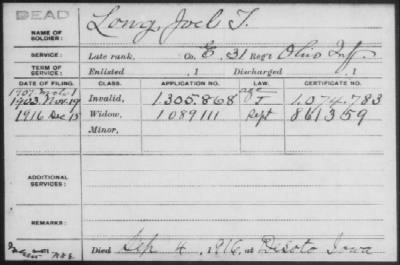 DEAD
NAME OF SOLDIER: Long, Joel T.
SERVICE: Late rank, Co. E, 31 Reg't Ohio Inf
TERM OF SERVICE: Enlisted , 1 Discharged , 1
DATE OF FILING. CLASS. APPLICATION NO. LAW. CERTIFICATE NO.
1 Invalid, 1.305.868 age J 1.074.783
1903 Nov. 19
1916 Dec 15 Widow, 1089111 Sept 861359
Minor,
ADDITIONAL SERVICES:
REMARKS:
Died Sep 4, 1916, at Desoto Iowa